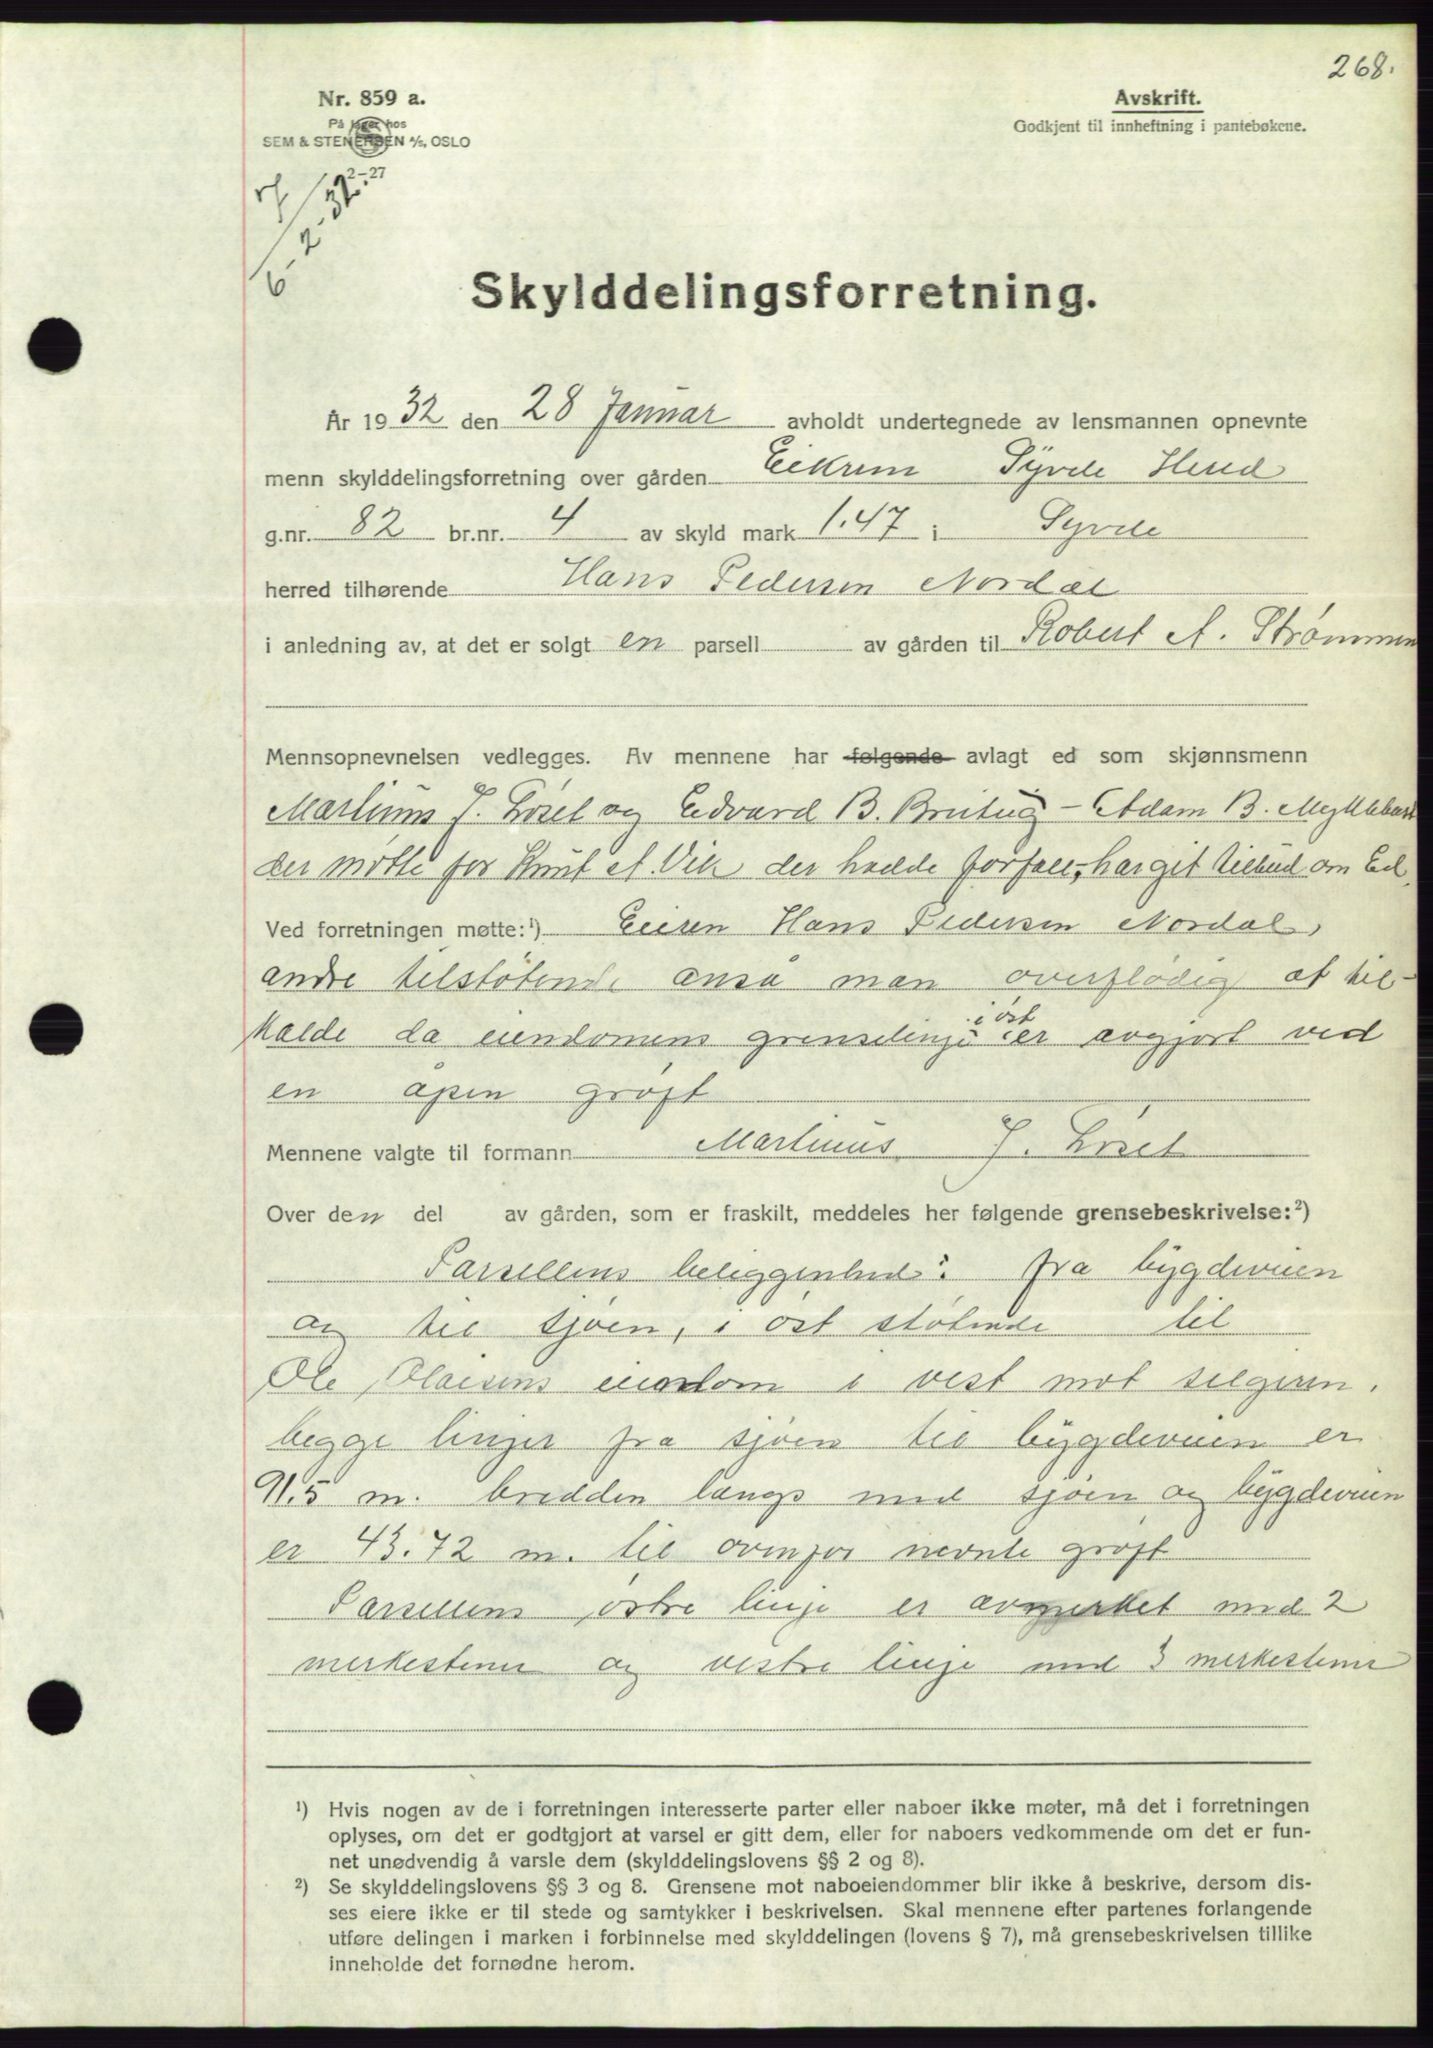 268.
Nr. 859 a.
På lager hos
SEM & STENERSEN A/S, OSLO
2-27
6-2-32
Avskrift.
Godkjent til innheftning i pantebøkene.
Skylddelingsforretning.
År 1932 den 28 Januar avholdt undertegnede av lensmannen opnevnte
menn skylddelingsforretning over gården Eikrem Syvde Herred
g.nr. 82 br.nr. 4 av skyld mark 1.47 i Syvde
herred tilhørende Hans Pedersen Nordal
i anledning av, at det er solgt en parsell av gården til Robert A. Strømmen
Mennsopnevnelsen vedlegges. Av mennene har følgende avlagt ed som skjønnsmenn
Martinus J. Løset og Edvard B. - Adam B. Myklebust
der møtte for Knut A. Vik der hadde forfall, har git tilbud om Ed.
Ved forretningen møtte:¹) Eieren Hans Pedersen Nordal,
andre tilstøtende anså man overflødig at til-
kalde da eiendomens grenselinje i øst er avgjort ved
en åpen grøft
Mennene valgte til formann Martinus J. Løset
Over den del av gården, som er fraskilt, meddeles her følgende grensebeskrivelse:²)
Parsellens beliggenhed: fra bygdeveien
og til sjøen, i øst støtende til
Ole Olaisens eiendom i vest mot selgeren.
begge linjer fra sjøen til bygdeveien er
91.5 m. bredden langs med sjøen og bygdeveien
er 43.72 m. til ovenfor nevnte grøft
Parsellens østre linje er avmerket med 2
merkestener og vestre linje med 3 merkestener
¹) Hvis nogen av de i forretningen interesserte parter eller naboer ikke møter, må det i forretningen
oplyses, om det er godtgjort at varsel er gitt dem, eller for naboers vedkommende om det er fun-
net unødvendig å varsle dem (skylddelingslovens §§ 2 og 8).
²) Se skylddelingslovens §§ 3 og 8. Grensene mot naboeiendommer blir ikke å beskrive, dersom dis-
ses eiere ikke er til stede og samtykker i beskrivelsen. Skal mennene efter partenes forlangende
utføre delingen i marken i forbinnelse med skylddelingen (lovens § 7), må grensebeskrivelsen tillike
inneholde det fornødne herom.